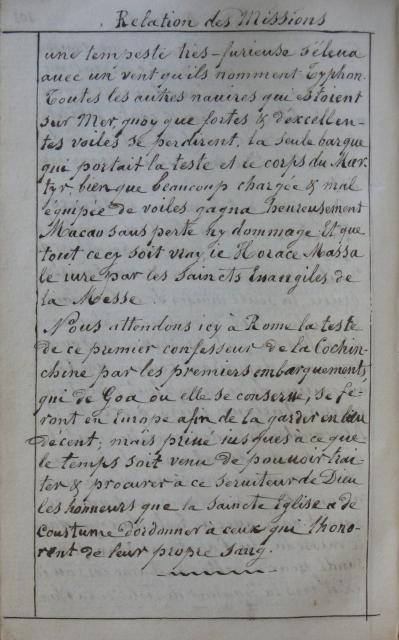 Relation des Missions
une tempeste très-furieuse s'éleua
auec un vent qu'ils nomment Typhon.
Toutes les autres nauires qui estoient
sur Mer, quoy que fortes & d'excellen-
tes voiles se perdirent, la seule barque
qui portait la teste et le corps du Mar-
tyr, bien que beaucoup chargée & mal
équipée de voiles gagna heureusement
Macao sans perte ny dommage. Et que
tout cecy soit vray, ie Horace Massa
le iure par les Saincts Euangiles de
la Messe
Nous attendons icy à Rome la teste
de ce premier confesseur de la Cochin-
chine par les premiers embarquements,
qui de Goa où elle se conserue, se fe-
ront en Europe afin de la garder en lieu
décent; mais priué iusques à ce que
le temps soit venu de pouuoir trai-
ter & procurer à ce seruiteur de Dieu
les honneurs que la saincte Eglise a de
coustume d'ordonner à ceux qui l'hono-
rent de leur propre sang.